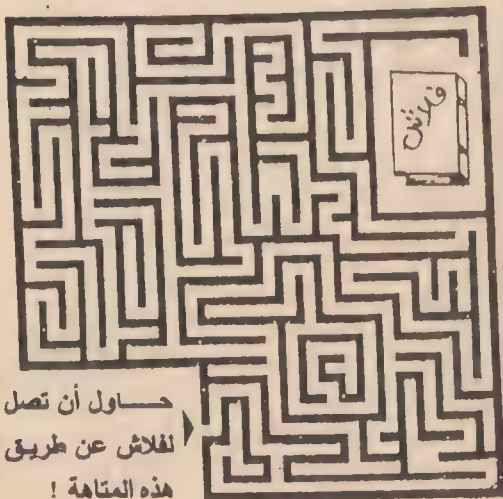 فلاش
حاول أن تصل
لفلاش عن طريق
هذه المتاهة !